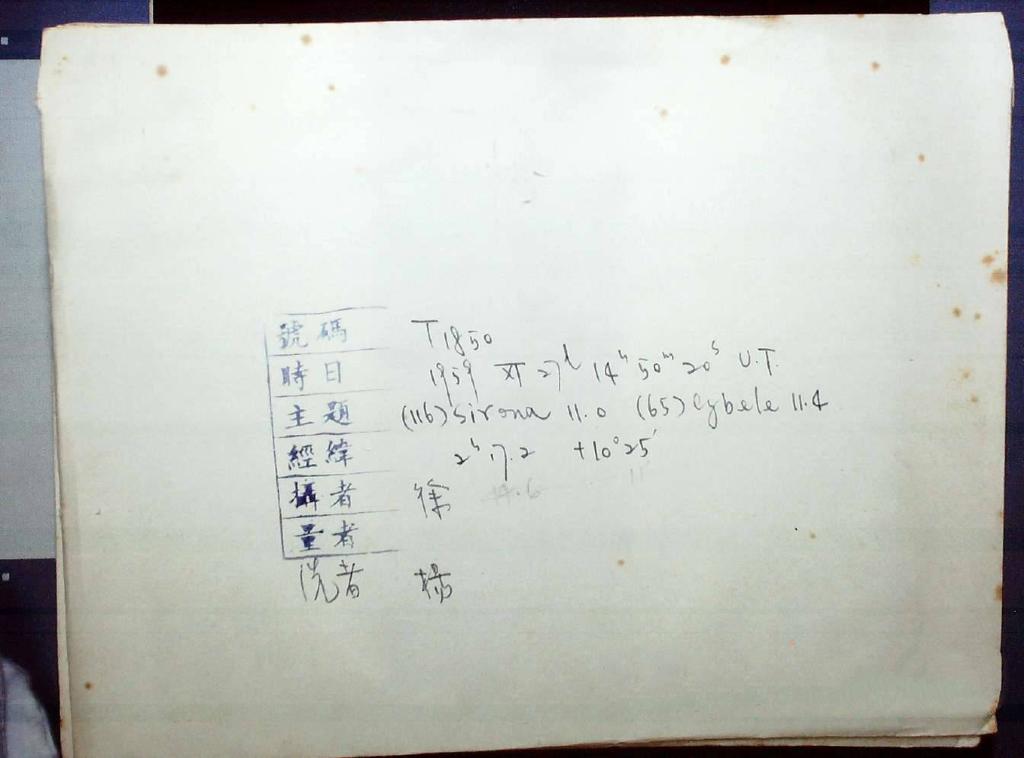 號碼 T1850
時日 1959 XI 27d 14h 50m 20s U.T.
主題 (116) Sirona 11.0 (65) Cybele 11.4
經緯 2h 17.2 +10°25′
攝者 徐
量者
洗者 楊